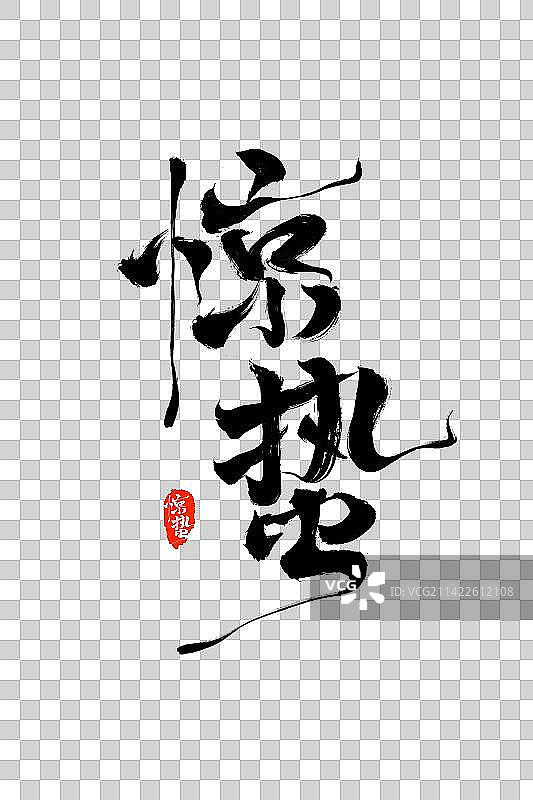 惊
蛰
惊蛰
VCG
ID:VCG211422612108